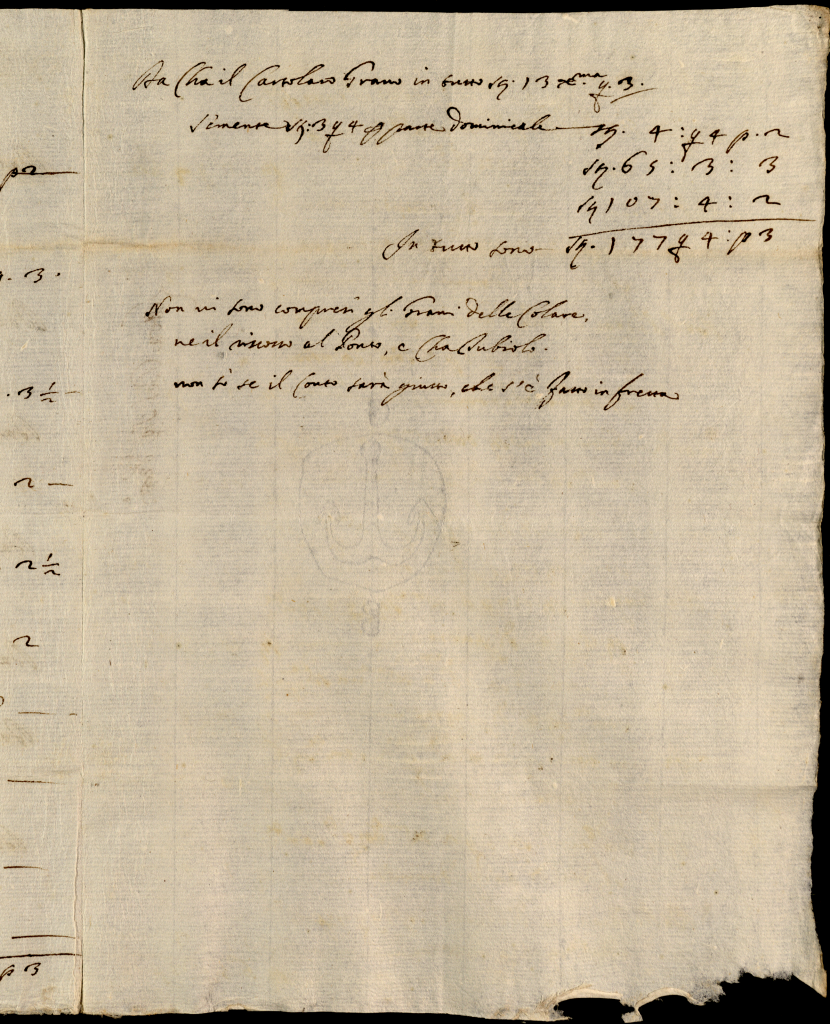 Da Cha il Cartolaro Grano in tutto sq. 13 q. 3.
semente sq. 3 q 4 p parte Dominicale sq. 4 : q 4 p. 2
sq. 65 : 3 : 3
sq 107 : 4 : 2
In tutto sono sq. 177 q 4 : p 3
Non vi sono compresi gli Grani delle Colare,
ne il riscosso al Ponto, e Cha
non sò se il Conto sarà giusto, che s'è fatto in fretta
p 2
. 3 .
. 3 1/2
2
2 1/2
2
p 3